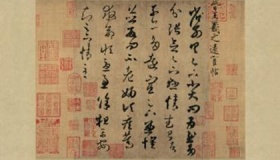 晉王羲之遠宦帖
省別具足下小大問為慰多
分張念足下懸情武昌諸
子亦多遠宦足下兼懷並
數問不老婦頃疾篤
救命恒憂慮餘粗平安
知足下情至